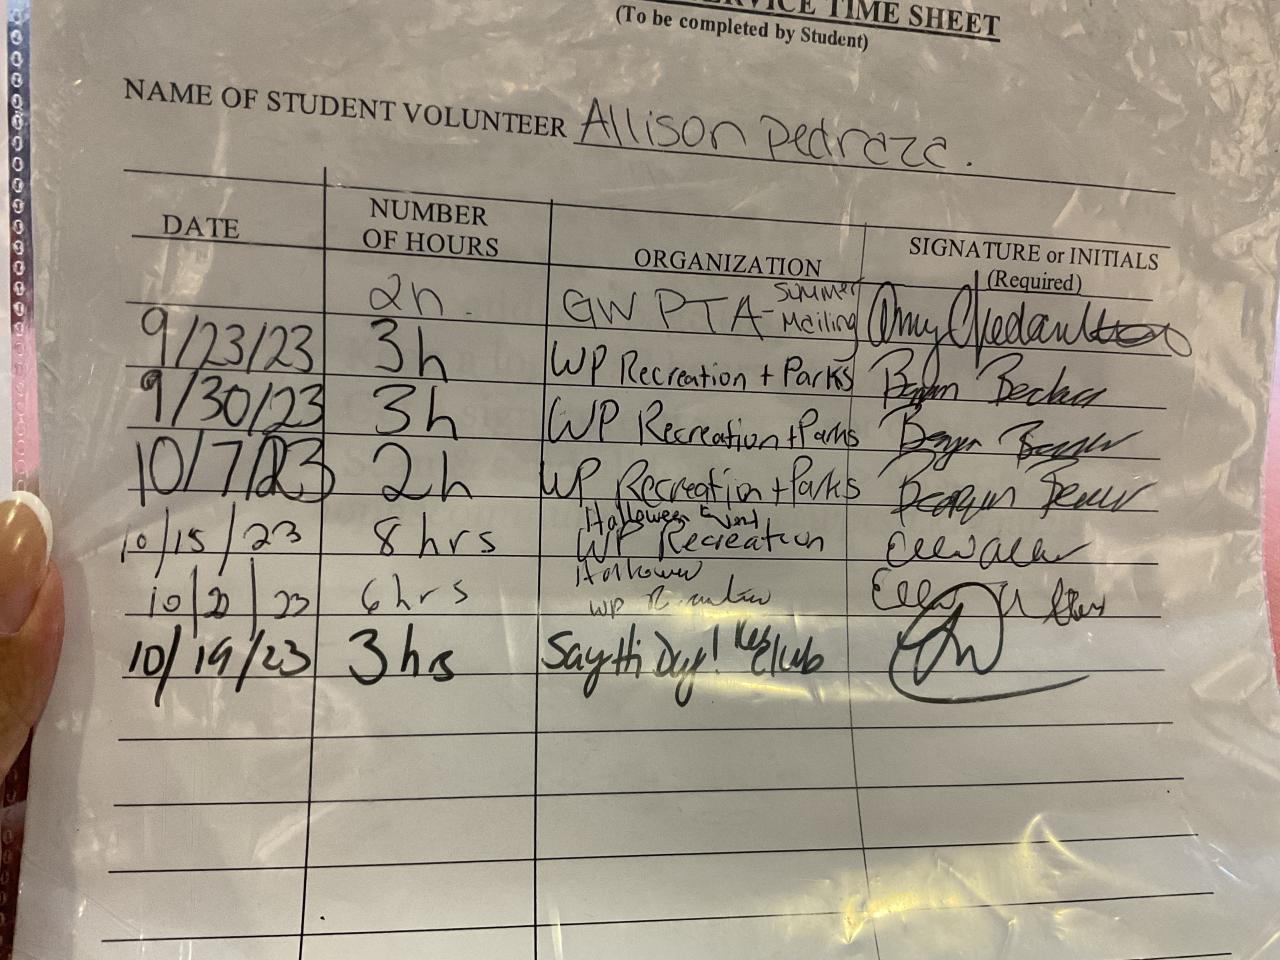 SERVICE TIME SHEET
(To be completed by Student)
NAME OF STUDENT VOLUNTEER Allison Pedraza.
DATE NUMBER OF HOURS ORGANIZATION SIGNATURE or INITIALS (Required)
2h. GW PTA - Summer Mailing Amy
9/23/23 3h WP Recreation + Parks
9/30/23 3h WP Recreation + Parks
10/7/23 2h WP Recreation + Parks
10/15/23 8 hrs Halloween Event WP Recreation
6 hrs WP
10/19/23 3 hrs Say Hi Day! Key Club